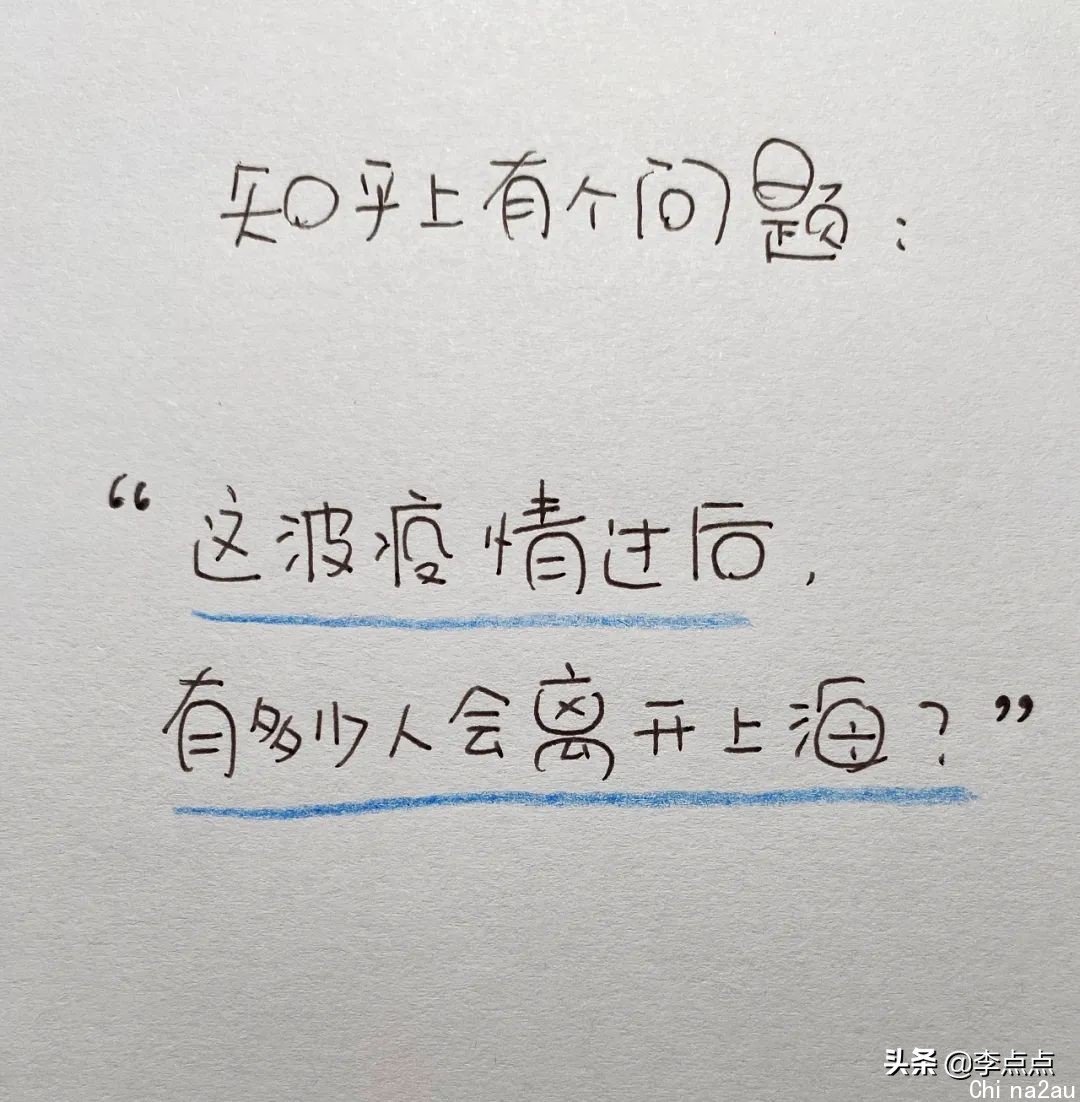 知乎上有个问题：
“这波疫情过后，
有多少人会离开上海？”
头条 @李点点
China2au